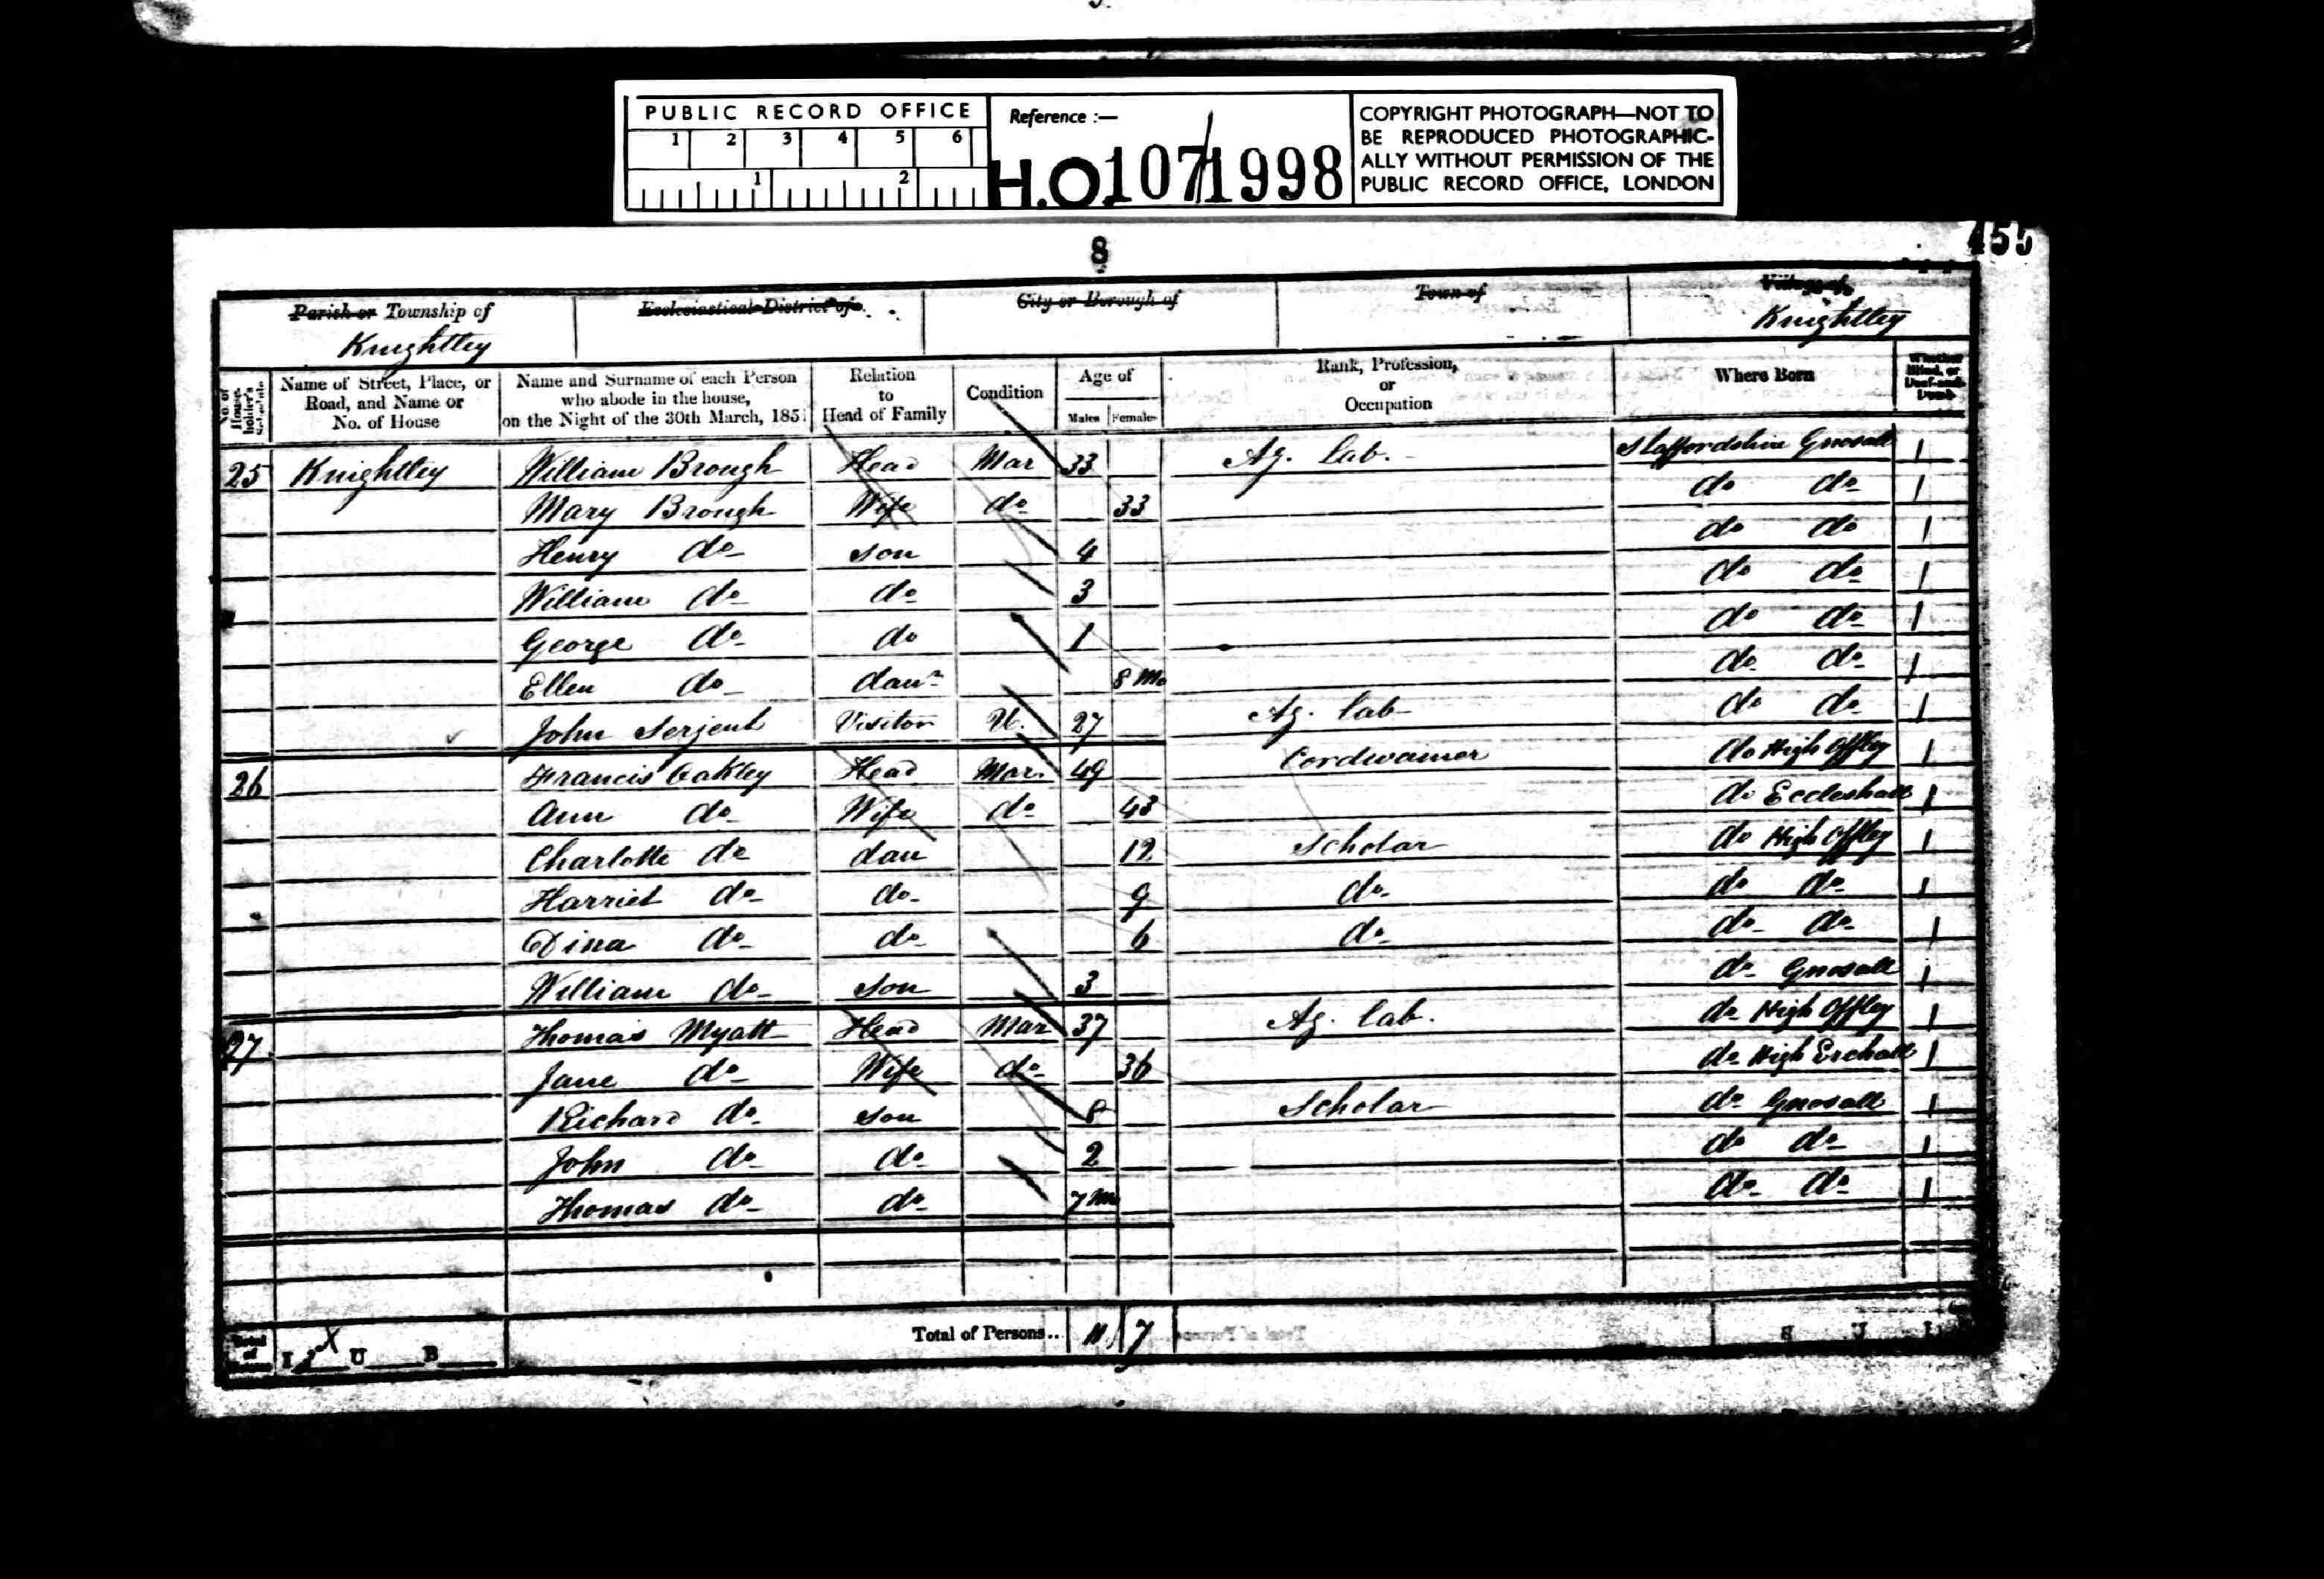 PUBLIC RECORD OFFICE
1 2 3 4 5 6
1 2
Reference :—
H.O.107/1998
COPYRIGHT PHOTOGRAPH—NOT TO
BE REPRODUCED PHOTOGRAPHIC-
ALLY WITHOUT PERMISSION OF THE
PUBLIC RECORD OFFICE, LONDON
8
455
Parish or Township of
Ecclesiastical District of
City or Borough of
Town of
Village of
Knightley
Knightley
No. of House-holder's Schedule
Name of Street, Place, or Road, and Name or No. of House
Name and Surname of each Person who abode in the house, on the Night of the 30th March, 1851
Relation to Head of Family
Condition
Age of
Males Females
Rank, Profession, or Occupation
Where Born
Whether Blind, or Deaf-and-Dumb
25 Knightley William Brough Head Mar 33 Ag. Lab. Staffordshire Gnosall 1
Mary Brough Wife do 33 do do 1
Henry do son 4 do do 1
William do do 3 do do 1
George do do 1 do do 1
Ellen do daur 8 Mo do do 1
John Serjent Visitor U. 27 Ag. Lab do do 1
26 Francis Oakley Head Mar. 49 Cordwainer do High Offley 1
Ann do Wife do 43 do Eccleshall 1
Charlotte do dau 12 Scholar do High Offley 1
Harriet do do 9 do do do 1
Dina do do 6 do do do 1
William do son 3 do Gnosall 1
27 Thomas Myatt Head Mar 37 Ag. Lab. do High Offley 1
Jane do Wife do 36 do High Erchall 1
Richard do son 8 Scholar do Gnosall 1
John do do 2 do do 1
Thomas do do 7 Mo do do 1
Total of
I U B
Total of Persons.. 11 7